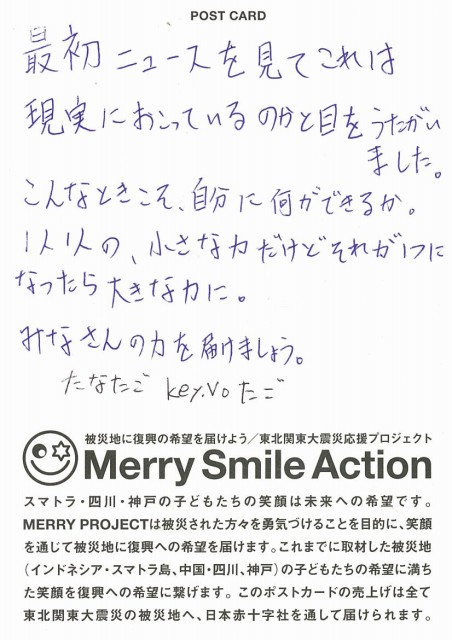 POST CARD
最初ニュースを見てこれは
現実におこっているのかと目をうたがい
ました。
こんなときこそ、自分に何ができるか。
1人1人の、小さな力だけどそれが1つに
なったら大きな力に。
みなさんの力を届けましょう。
たなたご key.vo たご
被災地に復興の希望を届けよう／東北関東大震災応援プロジェクト
Merry Smile Action
スマトラ・四川・神戸の子どもたちの笑顔は未来への希望です。
MERRY PROJECTは被災された方々を勇気づけることを目的に、笑顔
を通じて被災地に復興への希望を届けます。これまでに取材した被災地
（インドネシア・スマトラ島、中国・四川、神戸）の子どもたちの希望に満ち
た笑顔を復興への希望に繋げます。このポストカードの売上げは全て
東北関東大震災の被災地へ、日本赤十字社を通して届けられます。